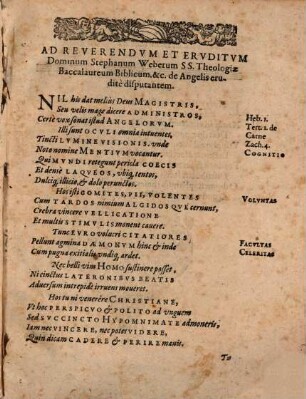 AD REVERENDVM ET ERVDITVM
Dominum Stephanum Weberum SS. Theologiæ
Baccalaureum Biblicum, &c. de Angelis eru-
ditè disputantem.
NIL his dat melius Deus MAGISTRIS,
Seu velis mage dicere ADMINISTROS,
Certè vox sonat istud ANGELORVM.
Illi sunt OCVLI omnia intuentes,
Tincti LVMINE VISIONIS, vnde
Noto nomine MENTIVM vocantur.
Qui MVNDI retegunt pericla COECIS
Et densè LAQVEOS, vbiq, tentos,
Dulciq, illicio, & dolo perunctos.
Hos isti COMITES, PII, VOLENTES
Cum TARDOS nimium ALGIDOSQVE cernunt,
Crebra vincere VELLICATIONE
Et multis STIMVLIS monent cauere.
Tunc EVRO volucri CITATIORES
Pellunt agmina DÆMONVM hinc & inde
Cum pugna exitialis, vndiq, ardet.
Nec belli vim HOMO sustinere posset,
Ni cinctus LATERONIBVS BEATIS
Aduersum intrepidè irruens moueret.
Hos tu ni venerêre CHRISTIANE,
Vt hos PERSPICVO & POLITO ad vnguem
Sed SVCCINCTO HYPOMNIMATE admoneris,
Iam nec VINCERE, nec potes VIDERE,
Quin dicam CADERE & PERIRE manis.
Heb. 1.
Tertul. de
Carne
Zach. 4.
COGNITIO
VOLVNTAS
FACVLTAS
CELERITAS
To